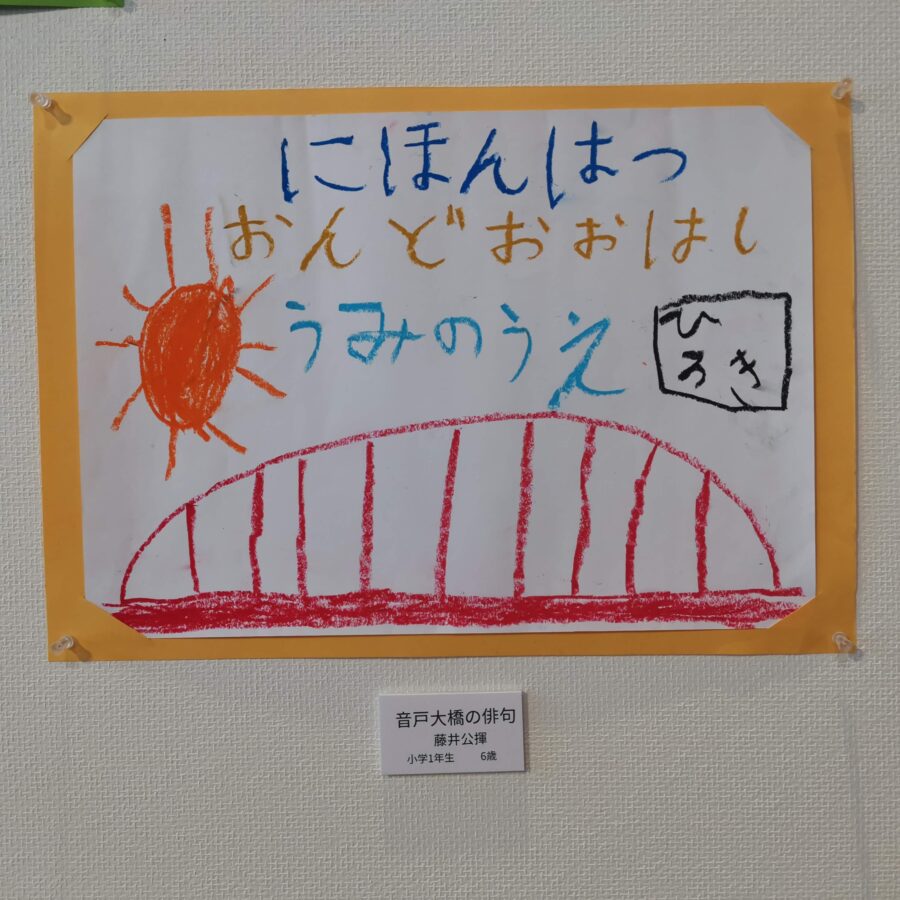 にほんはつ
おんどおおはし
うみのうえ
ひ
ろき
音戸大橋の俳句
藤井公揮
小学1年生 6歳